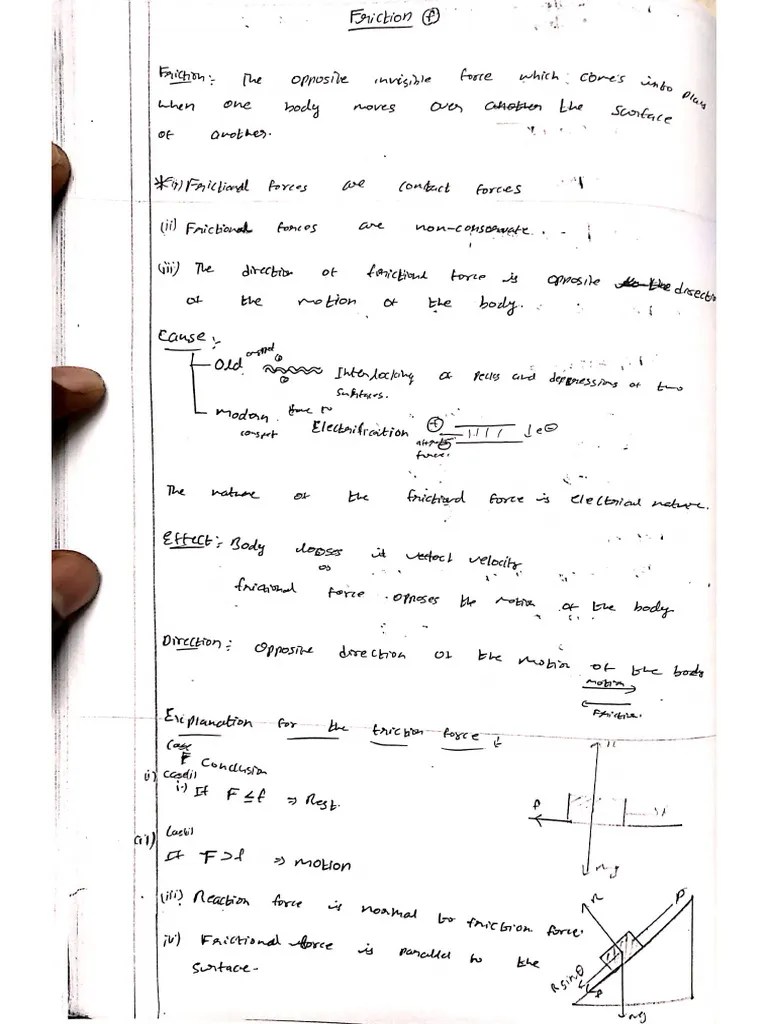 Friction (f)
Friction:- The opposite invisible force which comes into play
when one body moves over the surface
of another.
*(i) Frictional forces are contact forces
(ii) Frictional forces are non-conservate.
(iii) The direction of frictional force is opposite direction
of the motion of the body.
Cause:-
Old Interlocking of peaks and deppressions of two
surfaces.
Modern due to Electrification + e⊖
force.
The nature of the frictional force is electrical nature.
Effect:- Body looses it velocity
(or)
frictional force opposes the motion of the body
Direction:- opposite direction of the motion of the body
motion
Friction.
Explanation for the friction force :
Case
F Conclusion
(i) case(i)
i) If F ≤ f ⇒ Rest.
(ii) Case(ii)
If F > f ⇒ motion
(iii) Reaction force is normal to friction force.
iv) Frictional force is parallel to the
surface.
mg
R
P
R sinθ
mg